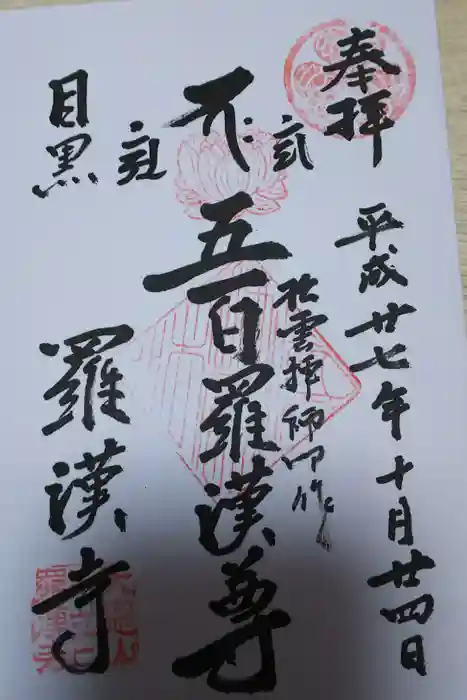 奉拝
平成廿七年十月廿四日
松雲禅師御作
五百羅漢尊
目黒
羅漢寺